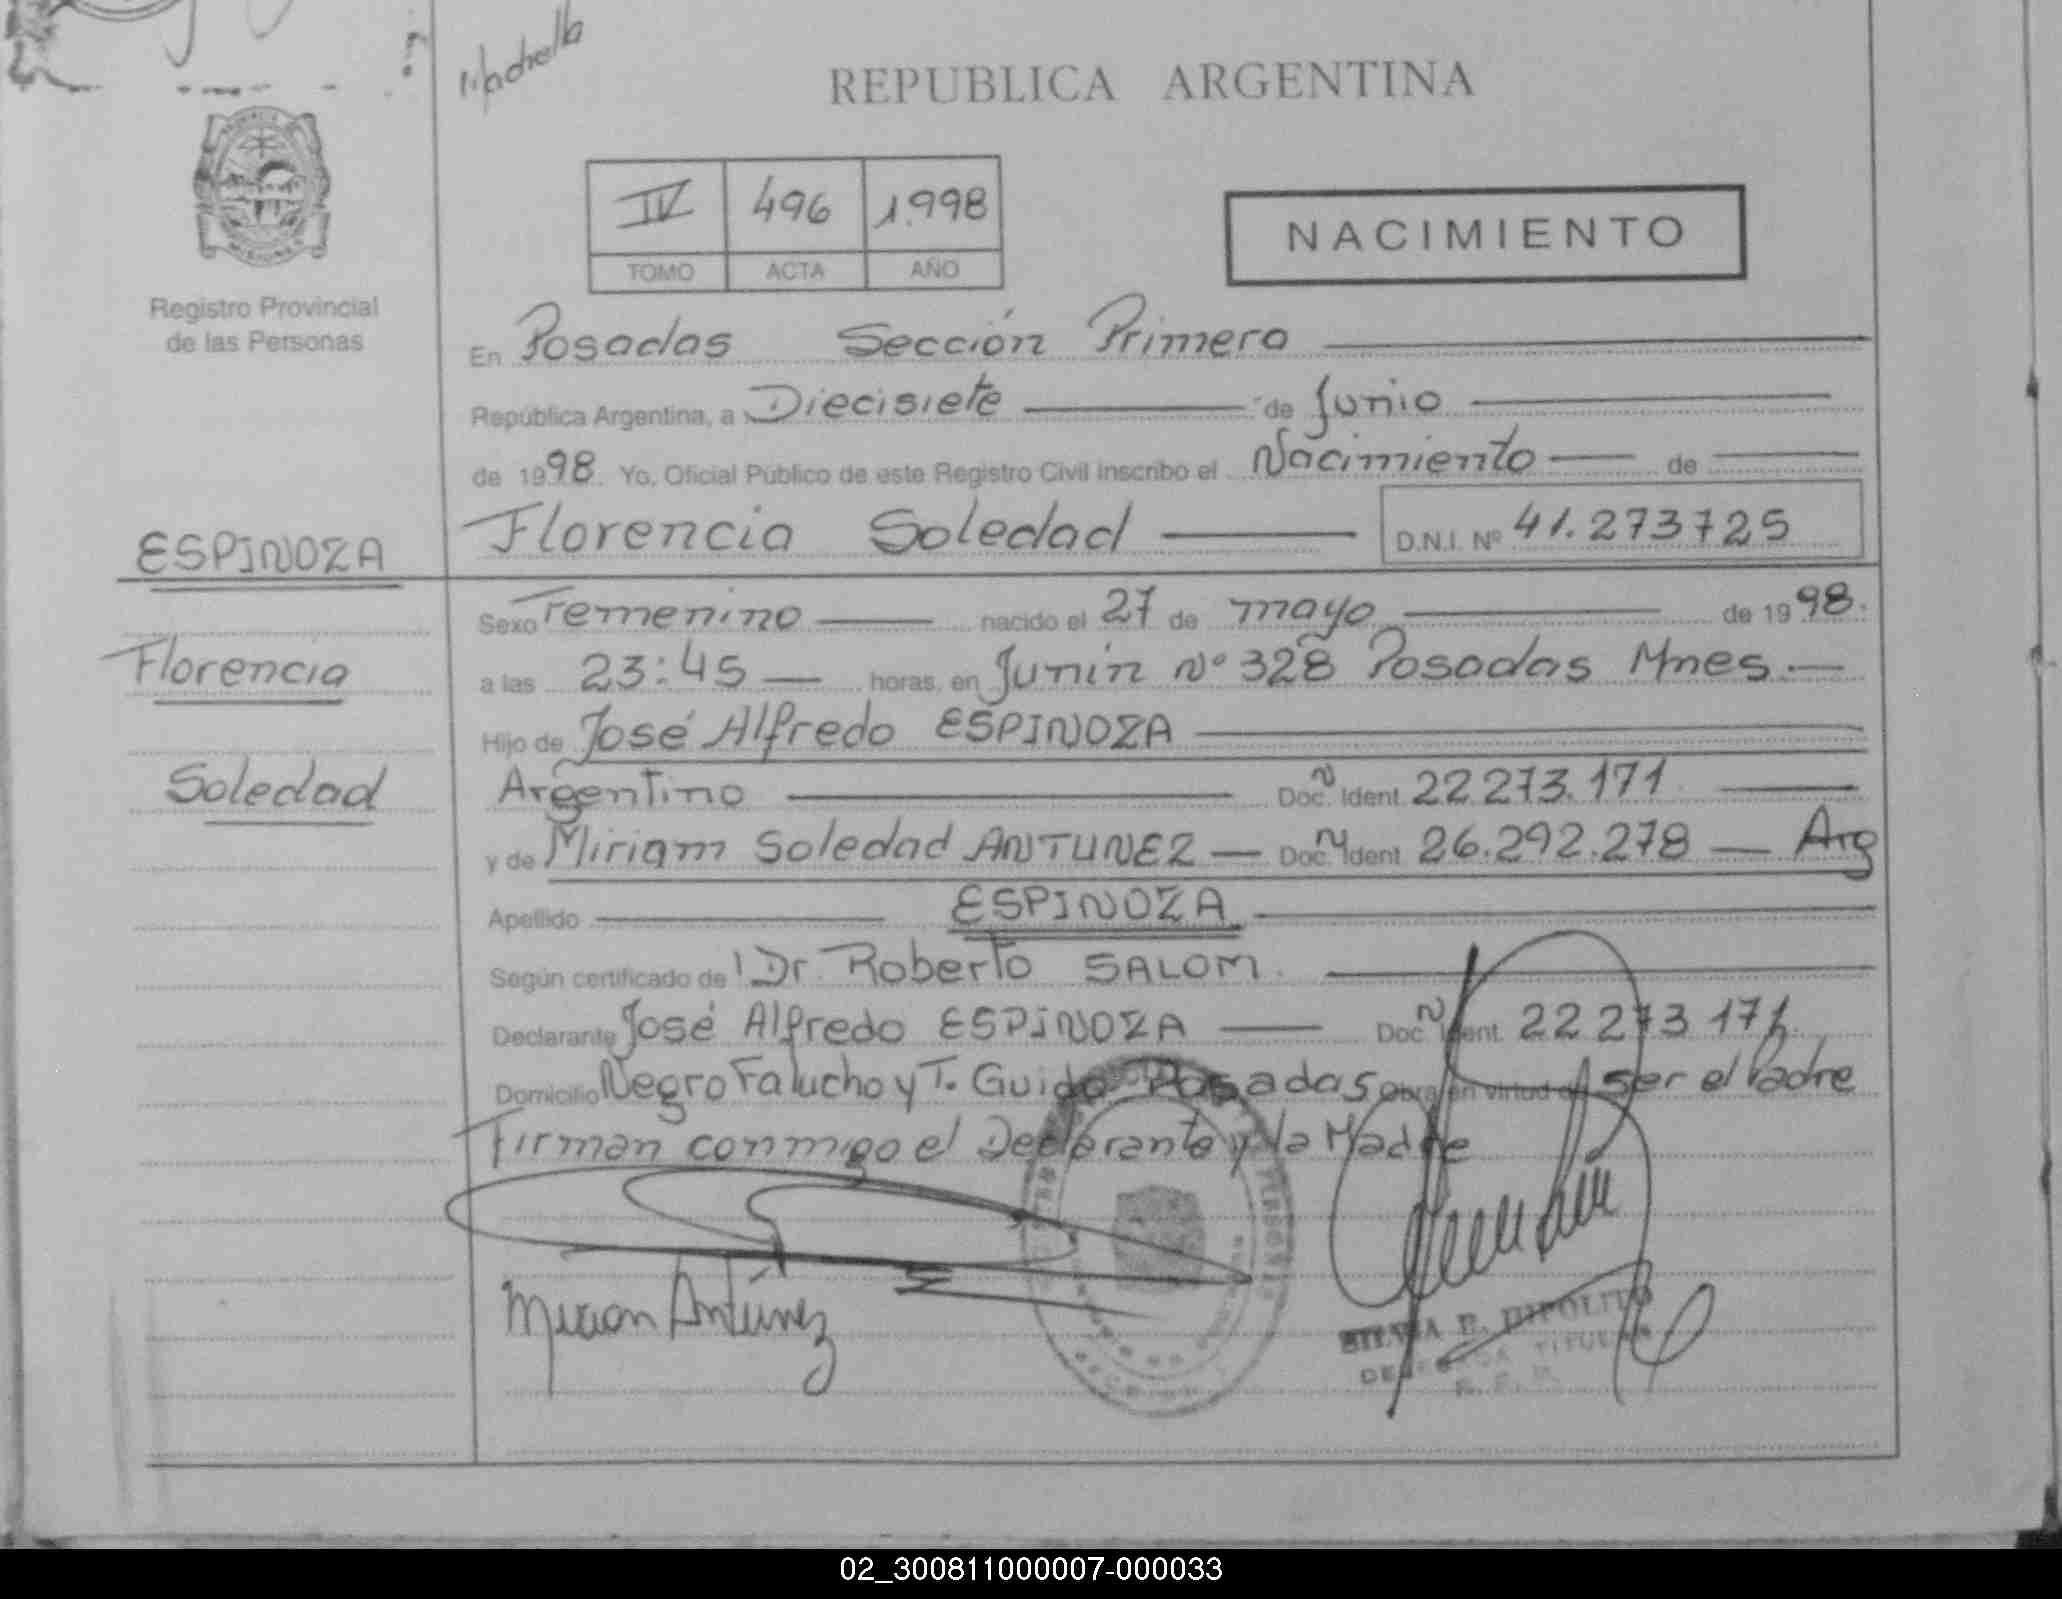 REPUBLICA ARGENTINA
IV 496 1.998
TOMO ACTA AÑO
NACIMIENTO
Registro Provincial
de las Personas
En Posadas Sección Primera
República Argentina, a Diecisiete de Junio
de 1998. Yo, Oficial Público de este Registro Civil inscribo el Nacimiento de
Florencia Soledad D.N.I. Nº 41.273725
ESPINOZA
Florencia
Soledad
Sexo Femenino nacido el 27 de mayo de 1998.
a las 23:45 horas, en Junín Nº 328 Posadas Mnes.
Hijo de José Alfredo ESPINOZA
Argentino Doc. N Ident. 22.273.171
y de Miriam Soledad ANTUNEZ Doc. N Ident. 26.292.278 Arg
Apellido ESPINOZA
Según certificado de Dr. Roberto SALOM.
Declarante José Alfredo ESPINOZA Doc. N Ident. 22 273 171.
Domicilio Negro Falucho y T. Guido Posadas Obra en virtud de ser el Padre
Firman conmigo el Declarante y la Madre
Miriam Antúnez
R. HIPOLITO
02_300811000007-000033